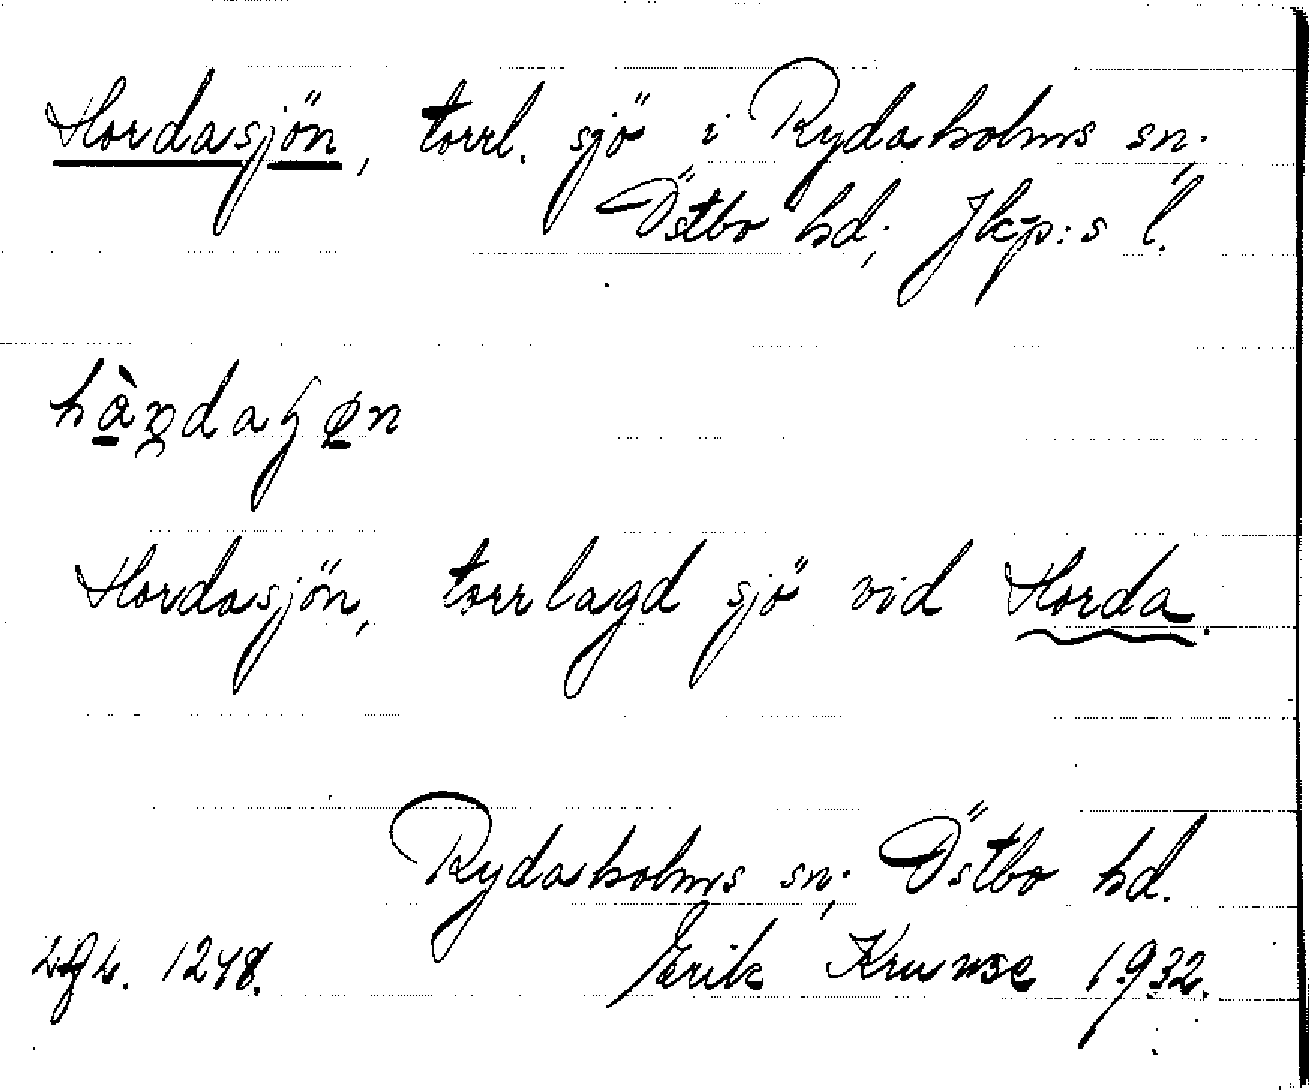 Hordasjön, torrl. sjö i Rydaholms sn;
Östbo hd; Jkp:s l.
Hordasjön, torrlagd sjö vid Horda.
Rydaholms sn; Östbo hd.
1248. Erik Kruuse 1932.